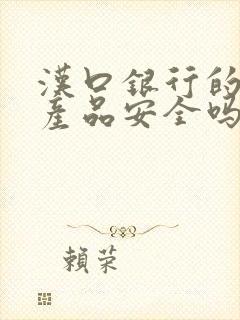 漢口銀行的
產品安全嗎
賴荣